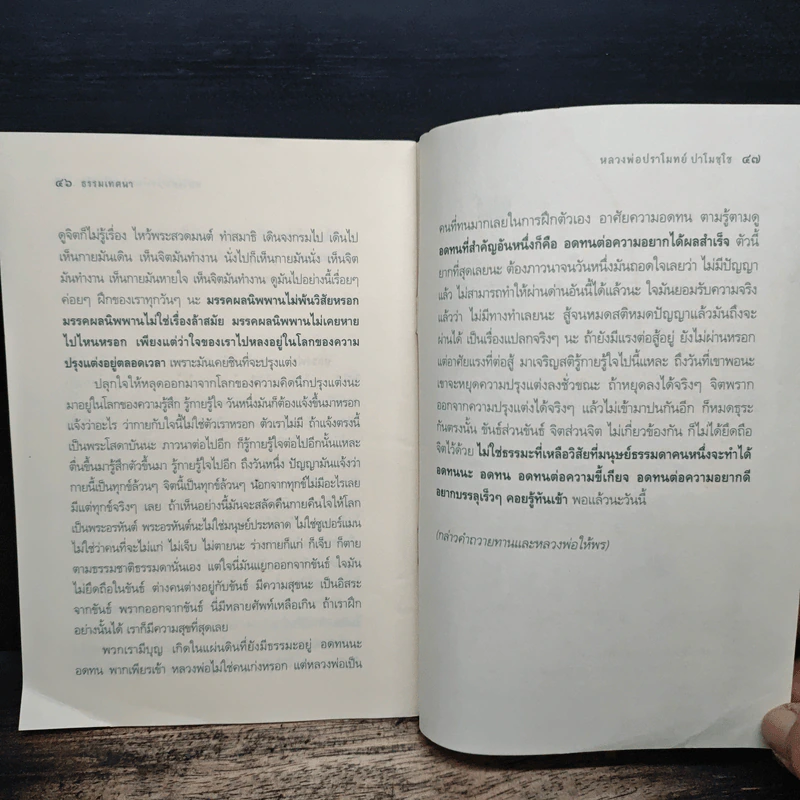 ๔๖ ธรรมเทศนา
ดูจิตก็ไม่รู้เรื่อง ไหว้พระสวดมนต์ ทำสมาธิ เดินจงกรมไป เดินไป
เห็นกายมันเดิน เห็นจิตมันทำงาน นั่งไปก็เห็นกายมันนั่ง เห็นจิต
มันทำงาน เห็นกายมันหายใจ เห็นจิตมันทำงาน ดูมันไปอย่างนี้เรื่อยๆ
ค่อยๆ ฝึกของเราทุกวันๆ นะ มรรคผลนิพพานไม่พ้นวิสัยหรอก
มรรคผลนิพพานไม่ใช่เรื่องล้าสมัย มรรคผลนิพพานไม่เคยหาย
ไปไหนหรอก เพียงแต่ว่าใจของเราไปหลงอยู่ในโลกของความ
ปรุงแต่งอยู่ตลอดเวลา เพราะมันเคยชินที่จะปรุงแต่ง
ปลุกใจให้หลุดออกมาจากโลกของความคิดนึกปรุงแต่งนะ
มาอยู่ในโลกของความรู้สึก รู้กายรู้ใจ วันหนึ่งมันก็ต้องแจ้งขึ้นมาหรอก
แจ้งว่าอะไร ว่ากายกับใจนี้ไม่ใช่ตัวเราหรอก ตัวเราไม่มี ถ้าแจ้งตรงนี้
เป็นพระโสดาบันนะ ภาวนาต่อไปอีก ก็รู้กายรู้ใจต่อไปอีกนั้นแหละ
ตื่นขึ้นมารู้สึกตัวขึ้นมา รู้กายรู้ใจไปอีก ถึงวันหนึ่ง ปัญญามันแจ้งว่า
กายนี้เป็นทุกข์ล้วนๆ จิตนี้เป็นทุกข์ล้วนๆ นอกจากทุกข์ไม่มีอะไรเลย
มีแต่ทุกข์จริงๆ เลย ถ้าเห็นอย่างนี้มันจะสลัดคืนกายคืนใจให้โลก
เป็นพระอรหันต์ พระอรหันต์นะไม่ใช่มนุษย์ประหลาด ไม่ใช่ซูเปอร์แมน
ไม่ใช่ว่าคนที่จะไม่แก่ ไม่เจ็บ ไม่ตายนะ ร่างกายก็แก่ ก็เจ็บ ก็ตาย
ตามธรรมชาติธรรมดานั่นเอง แต่ใจนี่มันแยกออกจากขันธ์ ใจมัน
ไม่ยึดถือในขันธ์ ต่างคนต่างอยู่กับขันธ์ มีความสุขนะ เป็นอิสระ
จากขันธ์ พรากออกจากขันธ์ นี่มีหลายศัพท์เหลือเกิน ถ้าเราฝึก
อย่างนั้นได้ เราก็มีความสุขที่สุดเลย
พวกเรามีบุญ เกิดในแผ่นดินที่ยังมีธรรมะอยู่ อดทนนะ
อดทน พากเพียรเข้า หลวงพ่อไม่ใช่คนเก่งหรอก แต่หลวงพ่อเป็น
หลวงพ่อปราโมทย์ ปาโมชฺโช ๔๗
คนที่ทนมากเลยในการฝึกตัวเอง อาศัยความอดทน ตามรู้ตามดู
อดทนที่สำคัญอันหนึ่งก็คือ อดทนต่อความอยากได้ผลสำเร็จ ตัวนี้
ยากที่สุดเลยนะ ต้องภาวนาจนวันหนึ่งมันถอดใจเลยว่า ไม่มีปัญญา
แล้ว ไม่สามารถทำให้ผ่านด่านอันนี้ได้แล้วนะ ใจมันยอมรับความจริง
แล้วว่า ไม่มีทางทำเลยนะ สู้จนหมดสติหมดปัญญาแล้วมันถึงจะ
ผ่านได้ เป็นเรื่องแปลกจริงๆ นะ ถ้ายังมีแรงต่อสู้อยู่ ยังไม่ผ่านหรอก
แต่อาศัยแรงที่ต่อสู้ มาเจริญสติรู้กายรู้ใจไปนี่แหละ ถึงวันที่เขาพอนะ
เขาจะหยุดความปรุงแต่งลงชั่วขณะ ถ้าหยุดลงได้จริงๆ จิตพราก
ออกจากความปรุงแต่งได้จริงๆ แล้วไม่เข้ามาปนกันอีก ก็หมดธุระ
กันตรงนั้น ขันธ์ส่วนขันธ์ จิตส่วนจิต ไม่เกี่ยวข้องกัน ก็ไม่ได้ยึดถือ
จิตไว้ด้วย ไม่ใช่ธรรมะที่เหลือวิสัยที่มนุษย์ธรรมดาคนหนึ่งจะทำได้
อดทนนะ อดทน อดทนต่อความขี้เกียจ อดทนต่อความอยากดี
อยากบรรลุเร็วๆ คอยรู้ทันเข้า พอแล้วนะวันนี้
(กล่าวคำถวายทานและหลวงพ่อให้พร)